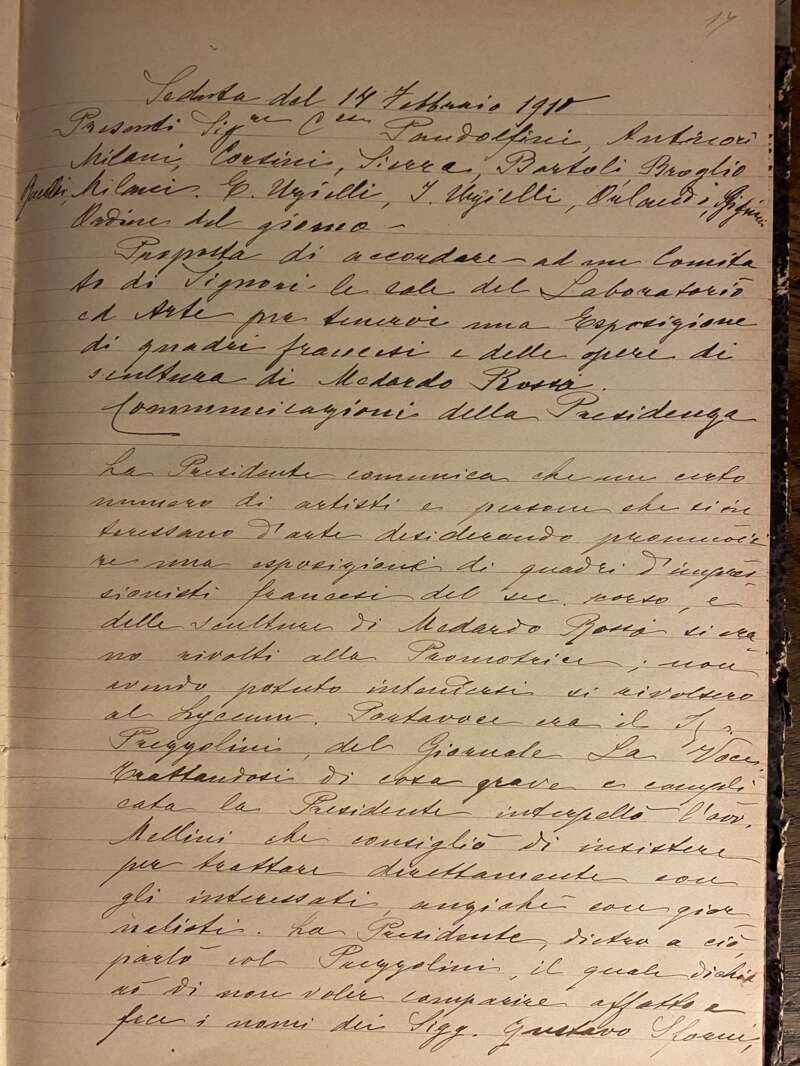 14
Seduta del 14 Febbraio 1910
Presenti Sig.re C.sse Pandolfini, Antinori
Milani, Corsini, Sierra, Bartoli Broglio
Milani. E. Uzielli, I. Uzielli, Orlandi,
Ordine del giorno –
Proposta di accordare ad un Comita
to di Signori le sale del Laboratorio
ed Arte per tenervi una Esposizione
di quadri francesi e delle opere di
scultura di Medardo Rossi.
Communicazioni della Presidenza
La Presidente comunica che un certo
numero di artisti e persone che si in
teressano d'arte desiderando promuove
re una esposizione di quadri d'impres-
sionisti francesi del sec. scorso, e
delle sculture di Medardo Rosso si era
no rivolti alla Promotrice; non
avendo potuto intendersi si rivolsero
al Lyceum. Portavoce era il Sig.
Prezzolini, del Giornale La Voce.
Trattandosi di cosa grave e compli
cata la Presidente interpellò l'avv.
Mellini che consigliò di insistere
per trattare direttamente con
gli interessati, anziché con gior
nalisti. La Presidente, dietro a ciò,
parlò col Prezzolini, il quale dichia
rò di non voler comparire affatto e
fece i nomi dei Sigg. Gustavo Sforni,